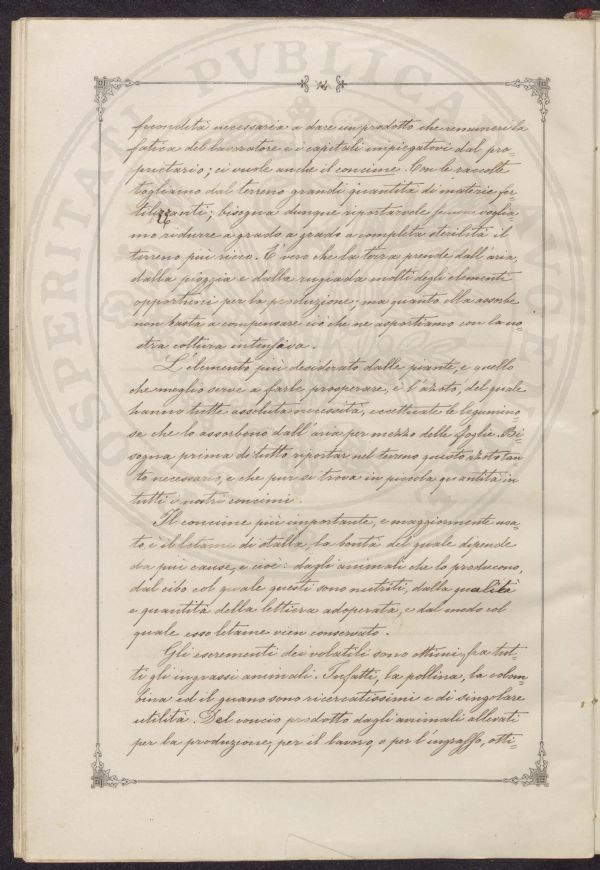 14
fecondità necessaria a dare un prodotto che renumeri la
fatica del lavoratore e i capitali impiegatovi dal pro=
prietario; ci vuole anche il concime. Con le raccolte
togliamo dal terreno grandi quantità di materie fer=
tilizzanti; bisogna dunque riportarvele se non voglia=
mo ridurre a grado a grado a completa sterilità il
terreno più ricco. È vero che la terra prende dall'aria,
dalla pioggia e dalla rugiada molti degli elementi
opportuni per la produzione; ma quanto ella assorbe
non basta a compensare ciò che ne asportiamo con la no=
stra coltura intensiva.
L'elemento più desiderato dalle piante, e quello
che meglio serve a farle prosperare, è l'azoto, del quale
hanno tutte assoluta necessità, eccettuate le legumino
se che lo assorbono dall'aria per mezzo delle foglie. Bi=
sogna prima di tutto riportar nel terreno questo azoto tan
to necessario, e che pur si trova in piccola quantità in
tutti i nostri concimi.
Il concime più importante, e maggiormente usa=
to, è il letame di stalla, la bontà del quale dipende
da più cause, e cioè: dagli animali che lo producono,
dal cibo col quale questi sono nutriti, dalla qualità
e quantità della lettiera adoperata, e dal modo col
quale esso letame vien conservato.
Gli escrementi dei volatili sono ottimi, fra tut=
ti gli ingrassi animali. Infatti, la pollina, la colom=
bina ed il guano sono ricercatissimi e di singolare
utilità. Del concio prodotto dagli animali allevati
per la produzione, per il lavoro, o per l'ingrasso, otti=
PROSPERITATI PVBLICAE AVGENDAE